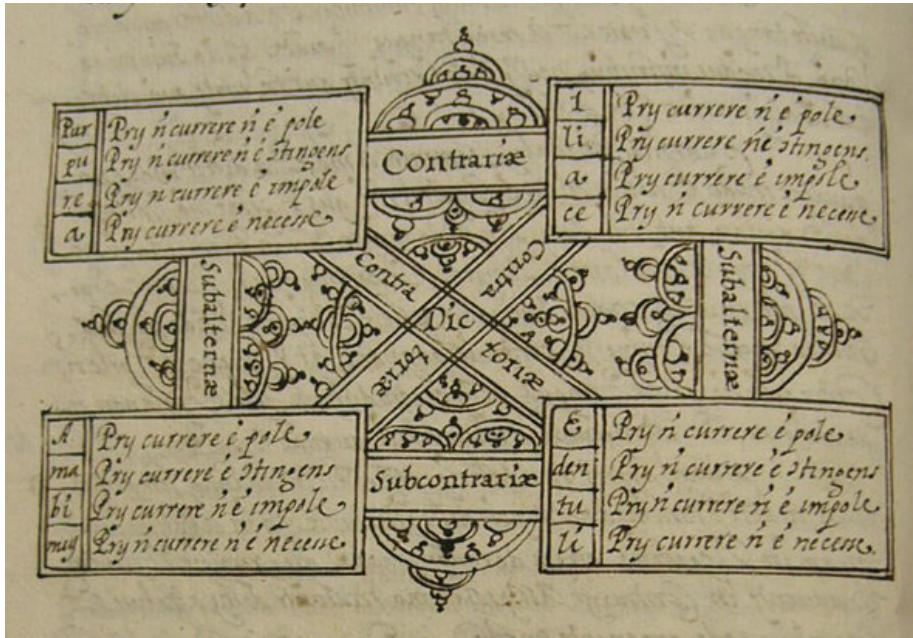 Pur Pry ń currere ń é pole
pu Pry ń currere ń é ɔtingens
re Pry ń currere é impole
a Pry currere é necesse
Contrariæ
I Pry currere ń é pole
li Pry currere ń é ɔtingens
a Pry currere é impole
ce Pry ń currere é necesse
Subalternæ
Contra
Contra
Dic
toriæ
toriæ
Subalternæ
A Pry currere é pole
ma Pry currere é ɔtingens
bi Pry currere ń é impole
Pry ń currere ń é necesse
Subcontrariæ
E Pry ń currere é pole
den Pry ń currere é ɔtingens
tu Pry ń currere ń é impole
li Pry currere ń é necesse